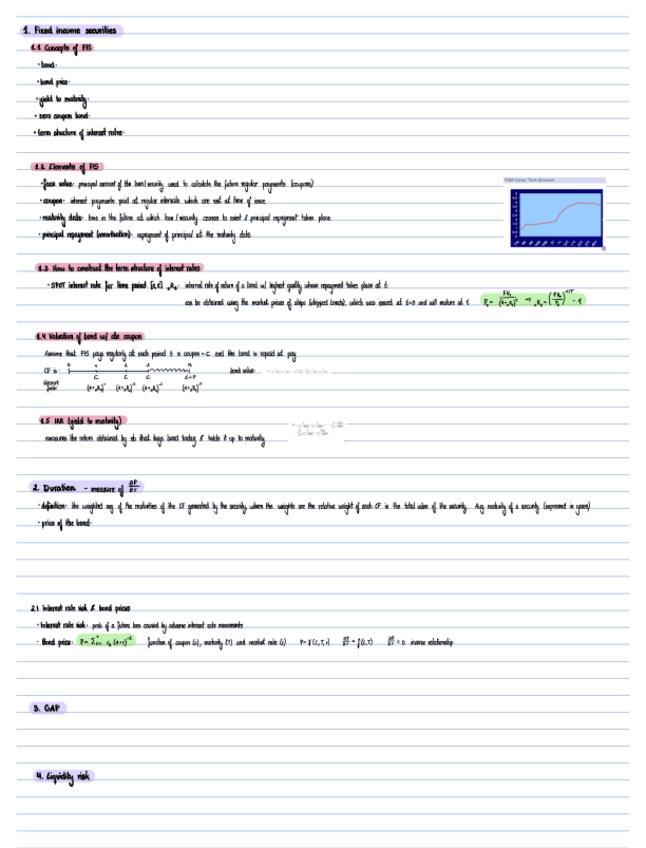 1. Fixed income securities
1.1 Concepts of FIS
· bond·
· bond price·
· yield to maturity·
· zero coupon bond·
· term structure of interest rates·
1.2 Elements of FIS
· face value· principal amount of the loan/security used to calculate the future regular payments (coupons)
· coupon· interest payments paid at regular intervals which are set at time of issue
· maturity date· time in the future at which loan/security ceases to exist & principal repayment takes place
· principal repayment (amortisation)· repayment of principal at the maturity date
1.3 How to construct the term structure of interest rates
· SPOT interest rate for time period [0,t] ₀Rₜ· internal rate of return of a bond w/ highest quality whose repayment takes place at t
can be obtained using the market prices of strips (stripped bonds), which was issued at t=0 and will mature at t
1.4 Valuation of bond w/ coupon
Assume that FIS pays regularly at each period t a coupon = C and the bond is repaid at
CF is·
C C C C+P
discount factor
bond value·
1.5 IRR (yield to maturity)
measures the return obtained by sb that buys bond today & holds it up to maturity
2. Duration - measure of ∂P/∂r
· definition· the weighted avg. of the maturities of the CF generated by the security where the weights are the relative weight of each CF in the total value of the security. Avg. maturity of a security (expressed in years)
· price of the bond·
2.1 Interest rate risk & bond prices
· Interest rate risk· prob of a future loss caused by adverse interest rate movements
· Bond price· function of coupon (c), maturity (T) and market rate (r) inverse relationship
3. GAP
4. Liquidity risk